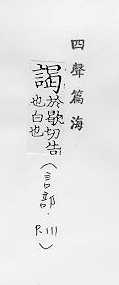 四聲篇海
謁
於歇切告
也白也
(言部.
P.111)